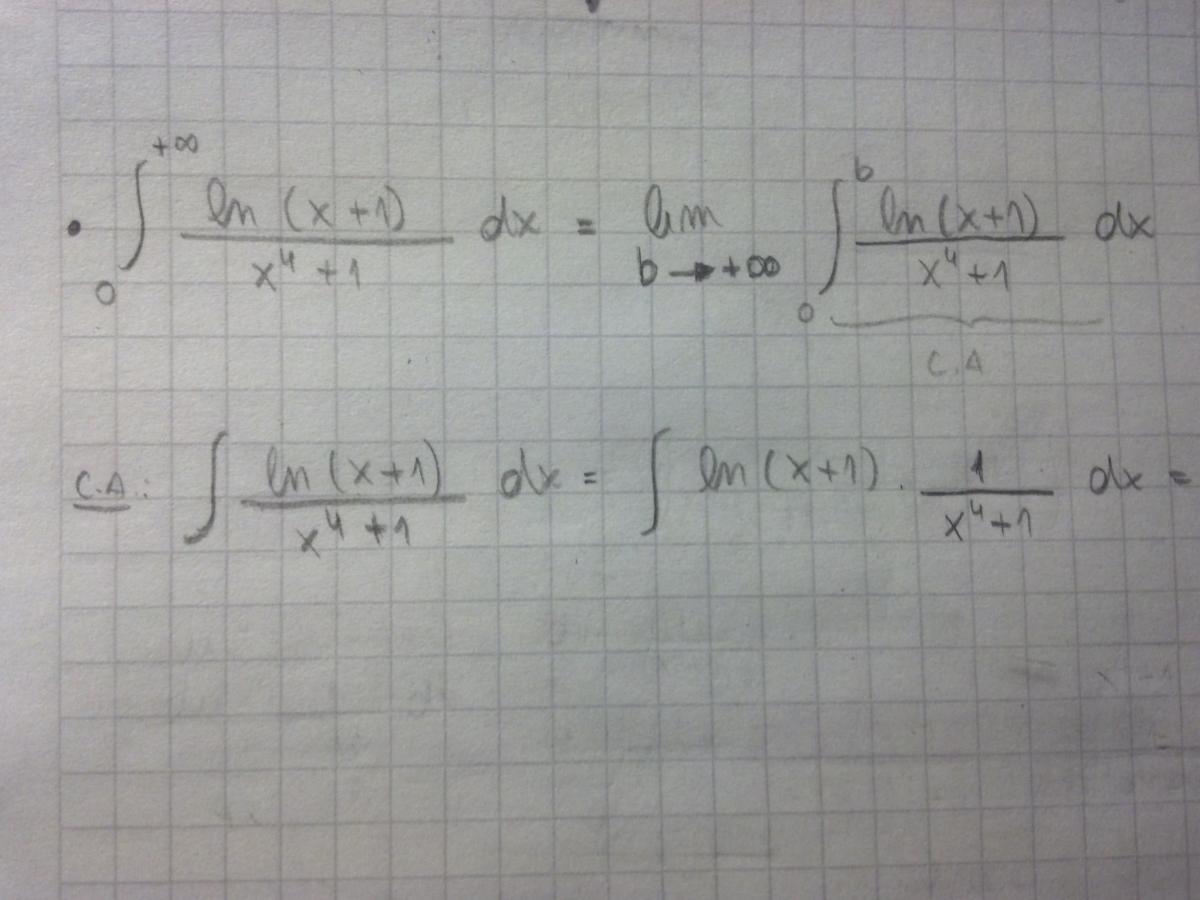 • ∫₀^{+∞} ln(x+1)/(x⁴+1) dx = lim_{b→+∞} ∫₀^b ln(x+1)/(x⁴+1) dx
C.A
C.A.: ∫ ln(x+1)/(x⁴+1) dx = ∫ ln(x+1) . 1/(x⁴+1) dx =